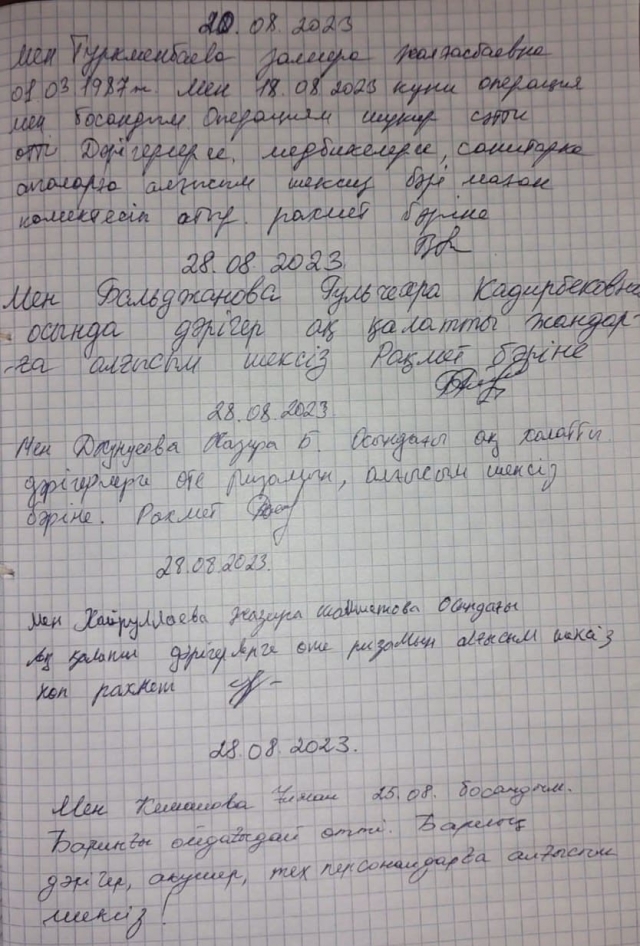 20.08.2023
Мен Туркменбаева Замира Жалгасбаевна
01.03 1987ж. Мен 18.08 2023 куни операция
мен босандым Операциям шукир сәтти
өтті Дәрігерлерге, медбикелерге, санитарка
апаларға алғысым шексиз бәрі маған
көмектесіп атыр. рахмет бәріне
28.08.2023
Мен Бальджанова Гульчехра Кадирбековна
осында дәрігер ақ қалатты жандар-
-ға алғысым шексіз Рақмет бәріне
28.08.2023.
Мен Джунусова Назира Б. Осындағы ақ халатты
дәрігерлерге өте ризамын, алғысым шексіз
бәріне. Рахмет
28.08.2023.
Мен Хайруллаева Жазира Осындағы
Ақ қалатты дәрігерлерге өте ризамын алғысым шексіз
көп рахмет
28.08.2023.
Мен 25.08. босандым.
Барлығы ойдағыдай өтті. Барлық
дәрігер, акушер, тех персоналдарға алғысым
шексіз!